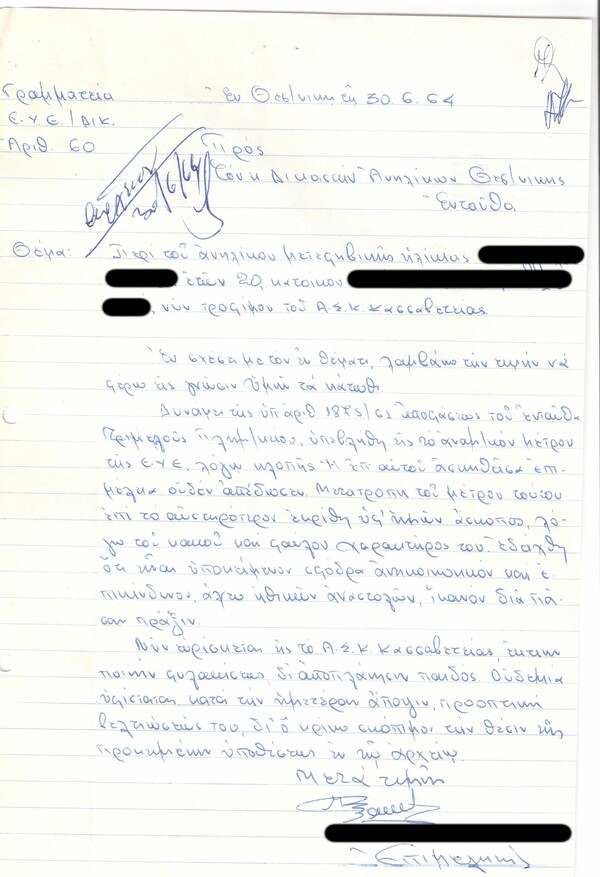 Γραμματεία
Ἐν Θεσ/νίκῃ τῇ 30.6.64
Ε.Υ.Ε./ΔΙΚ.
Ἀριθ. 60
Πρός
Τόν κ. Δικαστήν Ἀνηλίκων Θεσ/νίκης
Ἐνταῦθα
Θέμα: Περί τοῦ ἀνηλίκου μετεφηβικῆς ἡλικίας
ἐτῶν 20, κατοίκου
, νῦν τροφίμου τοῦ Α.Σ.Κ. Κασσαβετείας.
Ἐν σχέσει με τόν ἐν θέματι, λαμβάνω τήν τιμήν νά
φέρω εἰς γνῶσιν Ὑμῶν τά κάτωθι.
Δυνάμει τῆς ὑπ' ἀριθ 1875/62 ἀποφάσεως τοῦ ἐνταῦθα
Τριμελοῦς Πλημ/κείου, ὑπεβλήθη εἰς τό ἀναμ/κόν μέτρον
τῆς Ε.Υ.Ε, λόγω κλοπῆς. Ἡ ἐπ' αὐτοῦ ἀσκηθεῖσα ἐπι-
μέλεια οὐδέν ἀπέδωσεν. Μετατροπή τοῦ μέτρου τούτου
ἐπί τό αὐστηρότερον ἐκρίθη ὑφ' ἡμῶν ἄσκοπος, λό-
γω τοῦ κακοῦ καί φαύλου χαρακτῆρος του. Ἐδείχθη
ὅτι εἶναι ὑποκείμενον σφόδρα ἀντικοινωνικόν καί ἐ-
πικίνδυνον, ἄνευ ἠθικῶν ἀναστολῶν, ἱκανόν διά πᾶ-
σαν πρᾶξιν.
Νῦν εὑρίσκεται εἰς τό Α.Σ.Κ. Κασσαβετείας, ἐκτίων
ποινήν φυλακίσεως, δι' ἀποπλάνησιν παιδός. Οὐδεμία
ὑφίσταται κατά τήν ἡμετέραν ἄποψιν, προοπτική
βελτιώσεώς του, δι' ὅ κρίνω σκόπιμον τήν θέσιν τῆς
προκειμένης ὑποθέσεως ἐν τῷ ἀρχείῳ.
Μετά τιμῆς
Ὁ Ἐπιμελητής